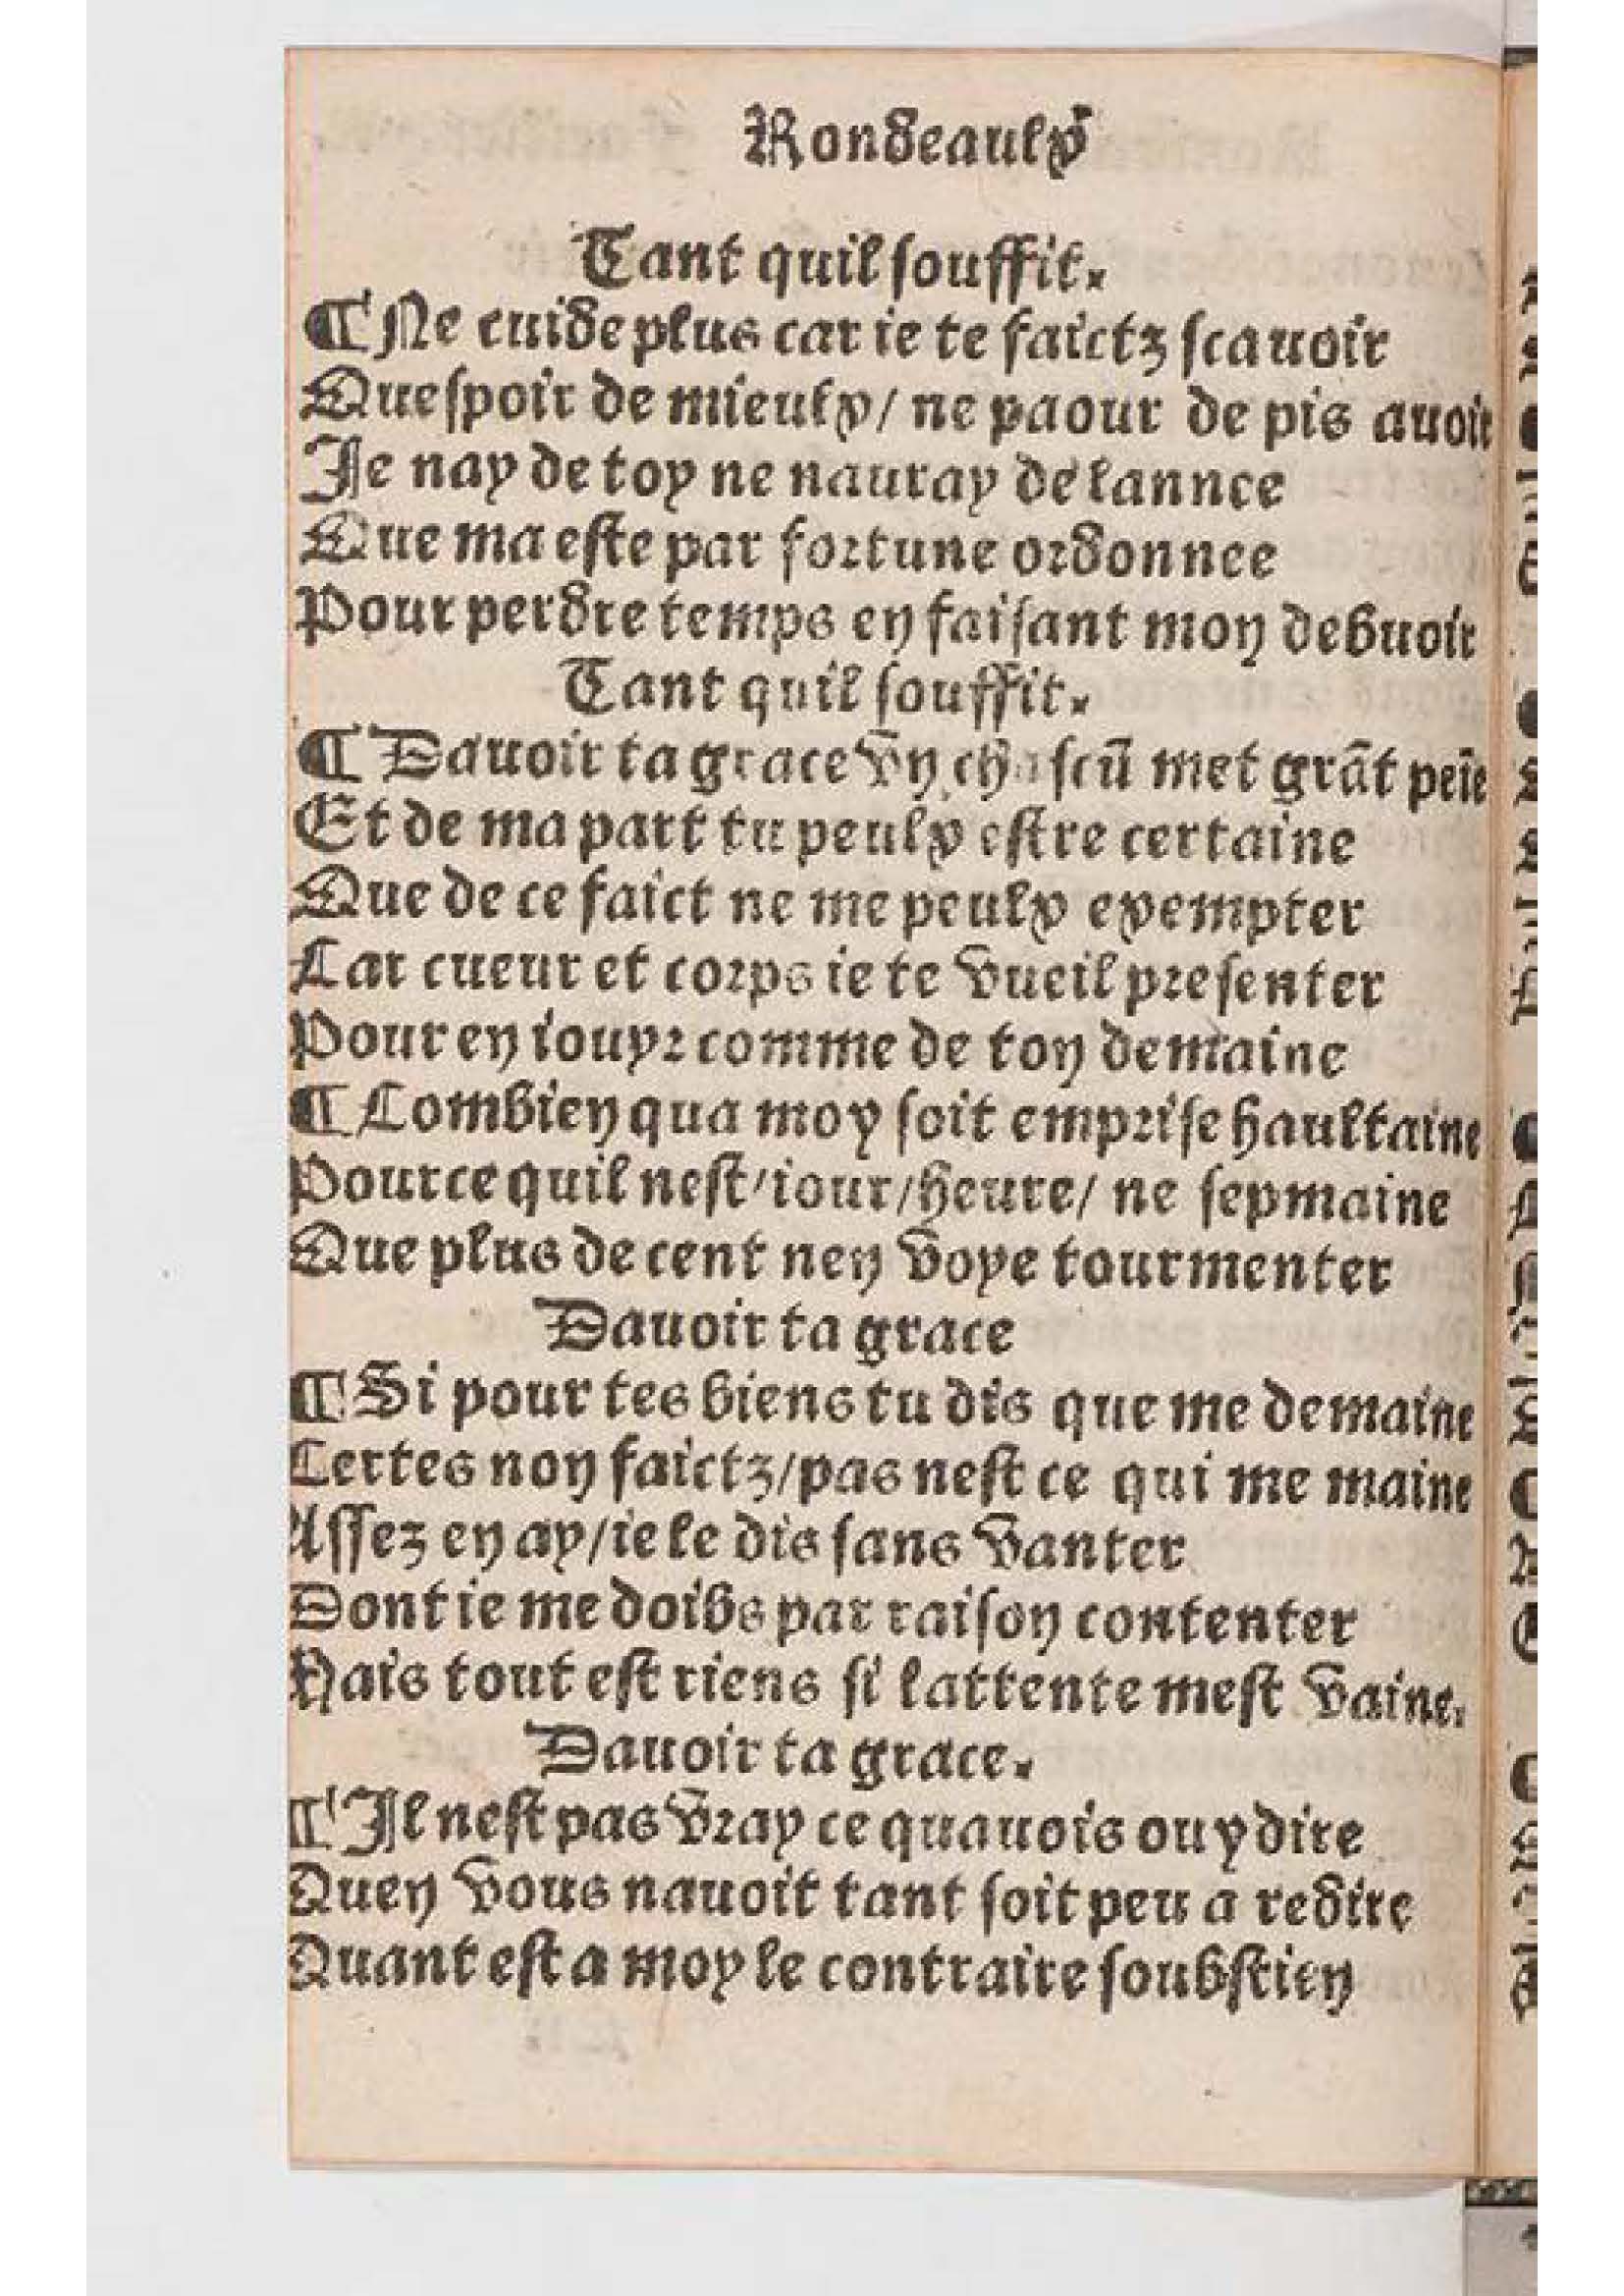 Rondeaulx
Tant quil souffit.
¶ Ne cuide plus car ie te faictz scauoir
Quespoir de mieulx / ne paour de pis auoir
Je nay de toy ne nauray de lannee
Que ma este par fortune ordonnee
Pour perdre temps en faisant mon debuoir
Tant quil souffit.
¶ Dauoir ta grace vn chascū met grāt peīe
Et de ma part tu peulx estre certaine
Que de ce faict ne me peulx exempter
Car cueur et corps ie te vueil presenter
Pour en iouyr comme de ton demaine
¶ Combien qua moy soit emprise haultaine
Pource quil nest / iour / heure / ne sepmaine
Que plus de cent nen voye tourmenter
Dauoir ta grace
¶ Si pour tes biens tu dis que me demaine
Certes non faictz / pas nest ce qui me maine
Assez en ay / ie le dis sans vanter
Dont ie me doibs par raison contenter
Mais tout est riens si lattente mest vaine.
Dauoir ta grace.
¶ Il nest pas vray ce quauois ouy dire
Quen vous nauoit tant soit peu a redire
Quant est a moy le contraire soubstien